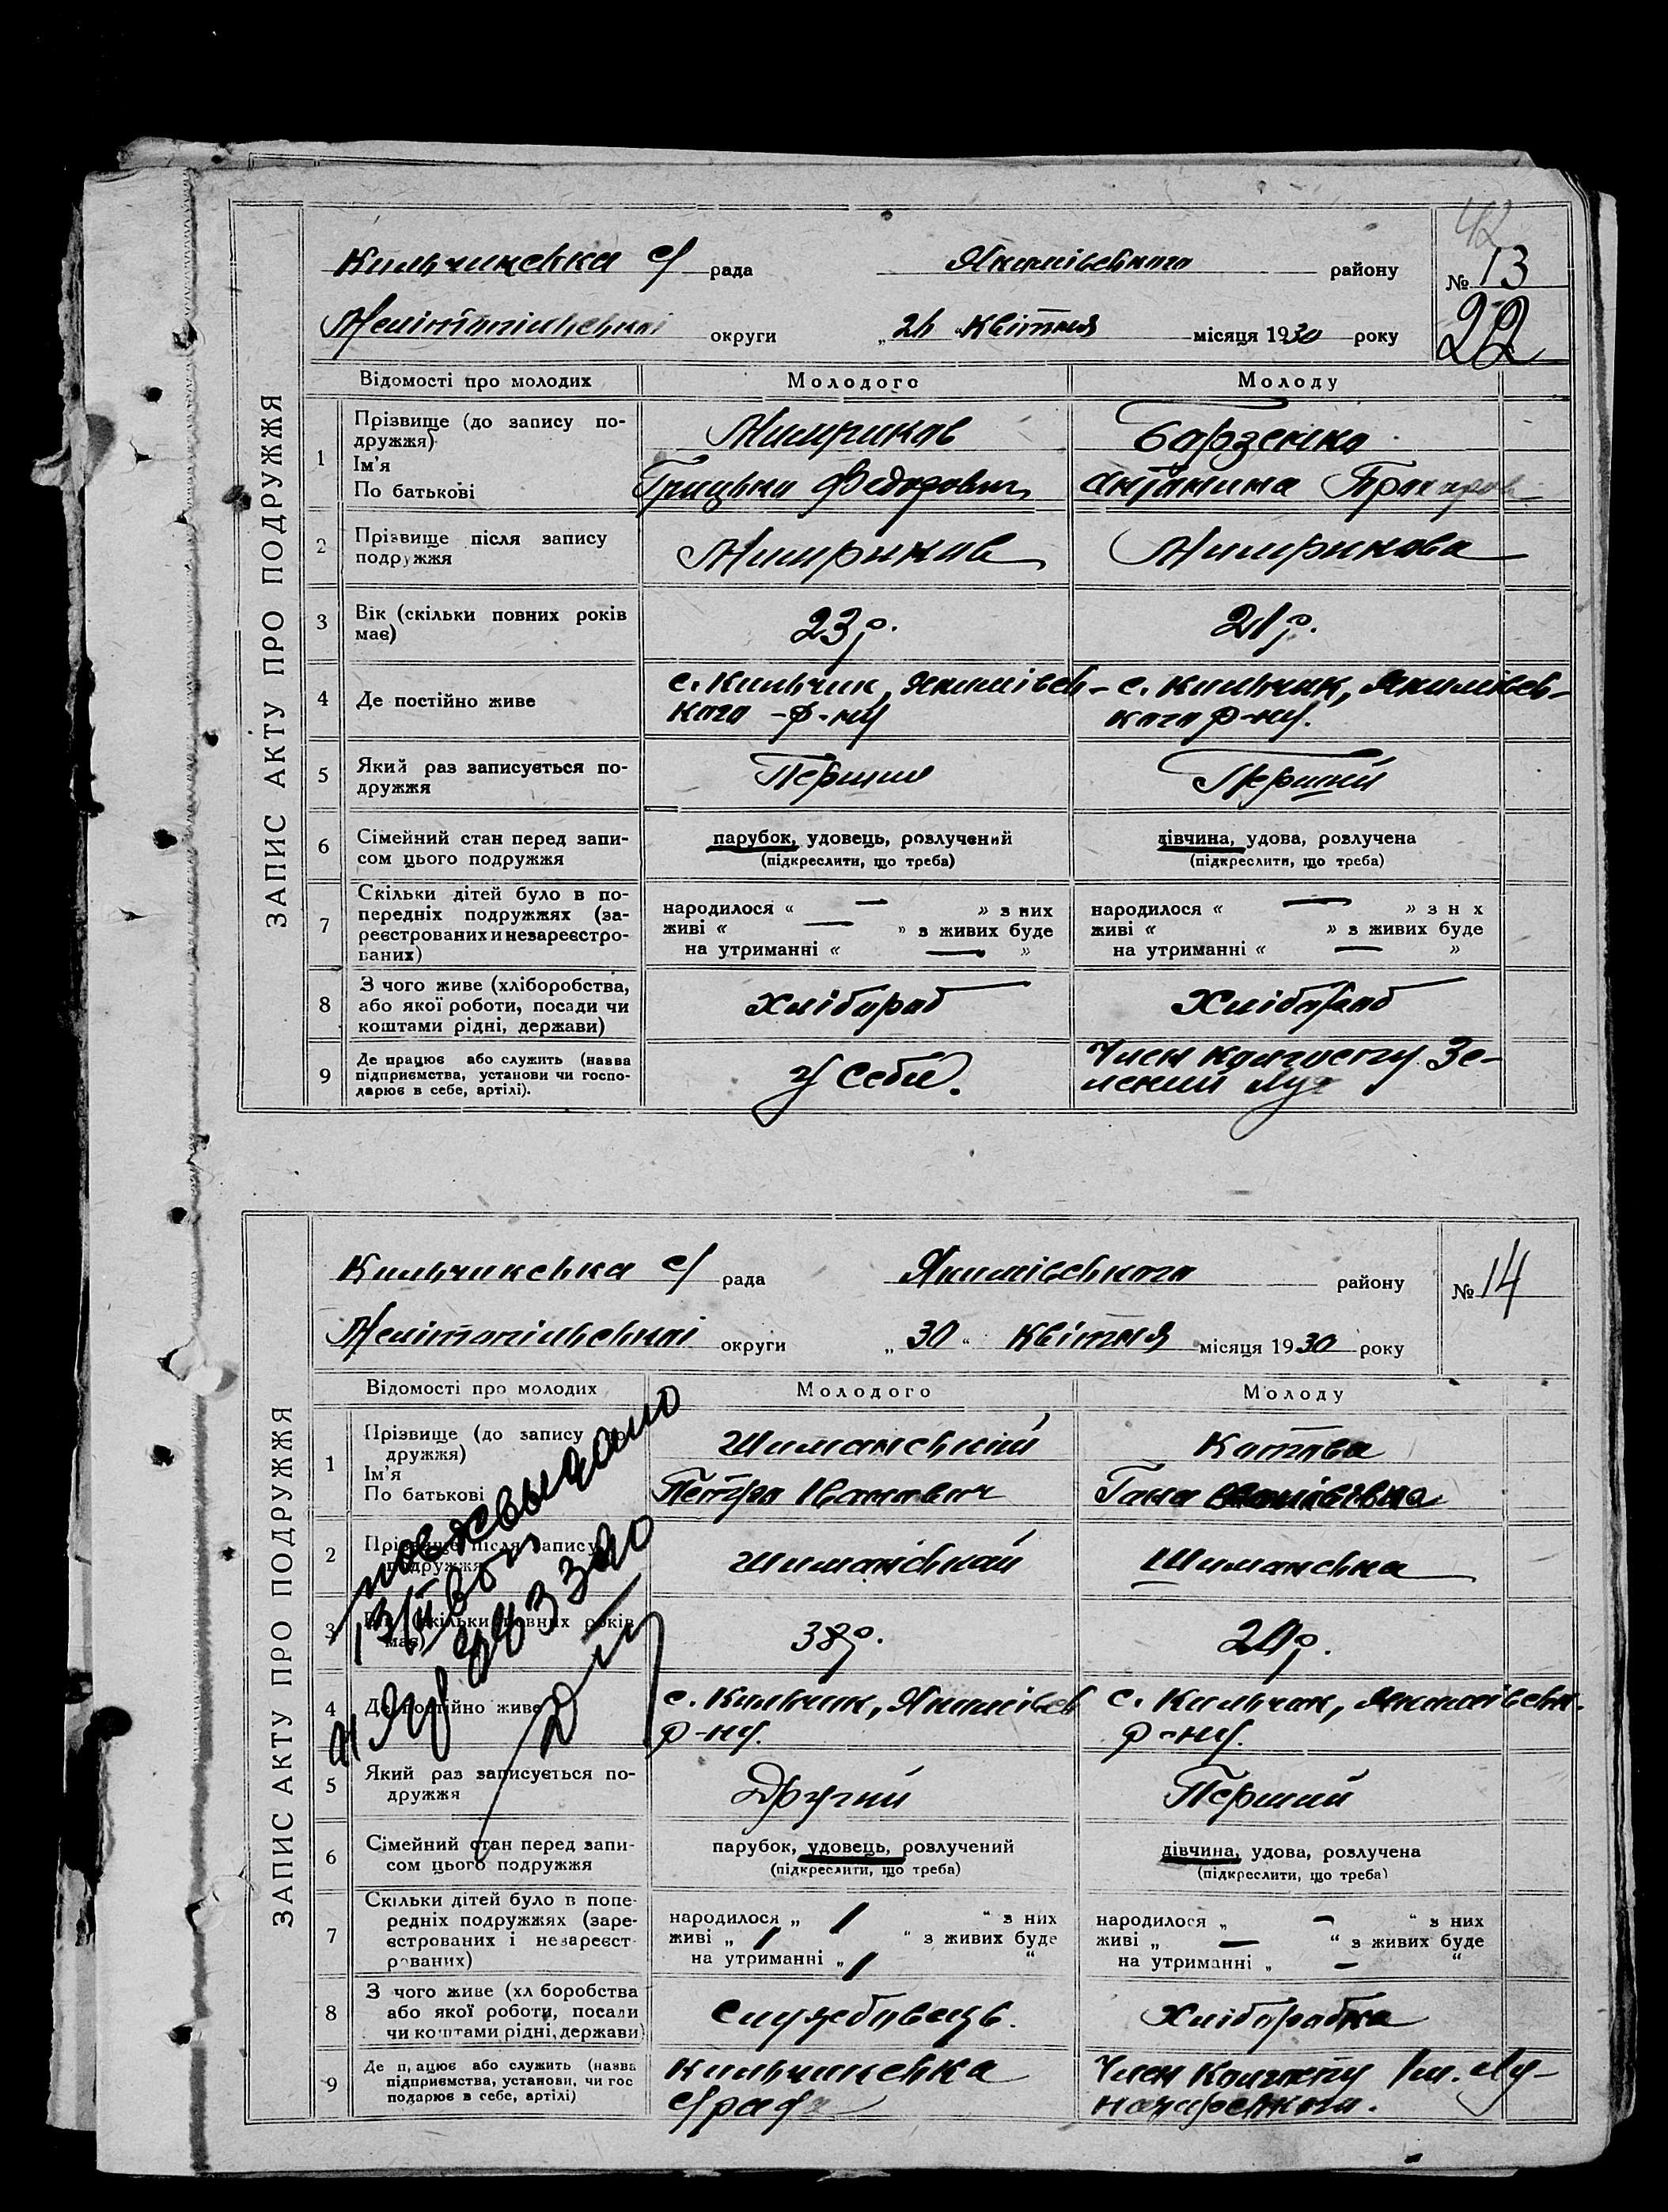 ЗАПИС АКТУ ПРО ПОДРУЖЖЯ
42
Кильчинська с/ рада Якимівського району
№ 13
Мелітопільської округи „ квітня місяця 1930 року
22
Відомості про молодих
Молодого
Молоду
1
Прізвище (до запису по-
дружжя)
Ім'я
По батькові
Борзенко
Грицько Федорович
Антонина
2
Прізвище після запису
подружжя
3
Вік (скільки повних років
має)
23 р.
21 р.
4
Де постійно живе
с. Кильчик, Якимівсь-
кого р-ну
с. Кильчик, Якимівсь-
кого р-ну.
5
Який раз записується по-
дружжя
Перший
Перший
6
Сімейний стан перед запи-
сом цього подружжя
парубок, удовець, розлучений
(підкреслити, що треба)
дівчина, удова, розлучена
(підкреслити, що треба)
7
Скільки дітей було в по-
передніх подружжях (за-
реєстрованих и незареєстро-
ваних)
народилося « — » з них
живі « — » з живих буде
на утриманні « — »
народилося « — » з н х
живі « » з живих буде
на утриманні « — »
8
З чого живе (хліборобства,
або якої роботи, посади чи
коштами рідні, держави)
Хлібороб
Хлібороб
9
Де працює або служить (назва
підприємства, установи чи госпо-
дарює в себе, артілі).
у себе.
Член колгоспу
ЗАПИС АКТУ ПРО ПОДРУЖЖЯ
Кильчикська с/ рада Якимівського району
№ 14
Мелітопільської округи „ 30 “ квітня місяця 1930 року
Відомості про молодих
Молодого
Молоду
1
Прізвище (до запису
дружжя)
Ім'я
По батькові
Шиманський
Котова
Петро Іванович
Гана
2
Прізвище після запису
подружжя
Шиманській
Шиманська
3
Вік (скільки повних років
має)
38 р.
20 р.
4
Де постійно живе
с. Кильчик, Якимівськ
р-ну.
с. Кильчик, Якимівськ.
р-ну.
5
Який раз записується по-
дружжя
Другий
Перший
6
Сімейний стан перед запи-
сом цього подружжя
парубок, удовець, розлучений
(підкреслити, що треба)
дівчина, удова, розлучена
(підкреслити, що треба)
7
Скільки дітей було в попе-
редніх подружжях (заре-
єстрованих і незареєст-
рованих)
народилося „ / “ з них
живі „ / “ з живих буде
на утриманні „ / “
народилося „ — “ з них
живі „ — “ з живих буде
на утриманні „ — “
8
З чого живе (хл боробства
або якої роботи, посади
чи коштами рідні, держави)
Службовець.
Хліборобка
9
Де працює або служить (назва
підприємства, установи, чи гос
подарює в себе, артілі)
Кильчикська
с/рада
Член Колгоспу Ім. Лу-
начарського.